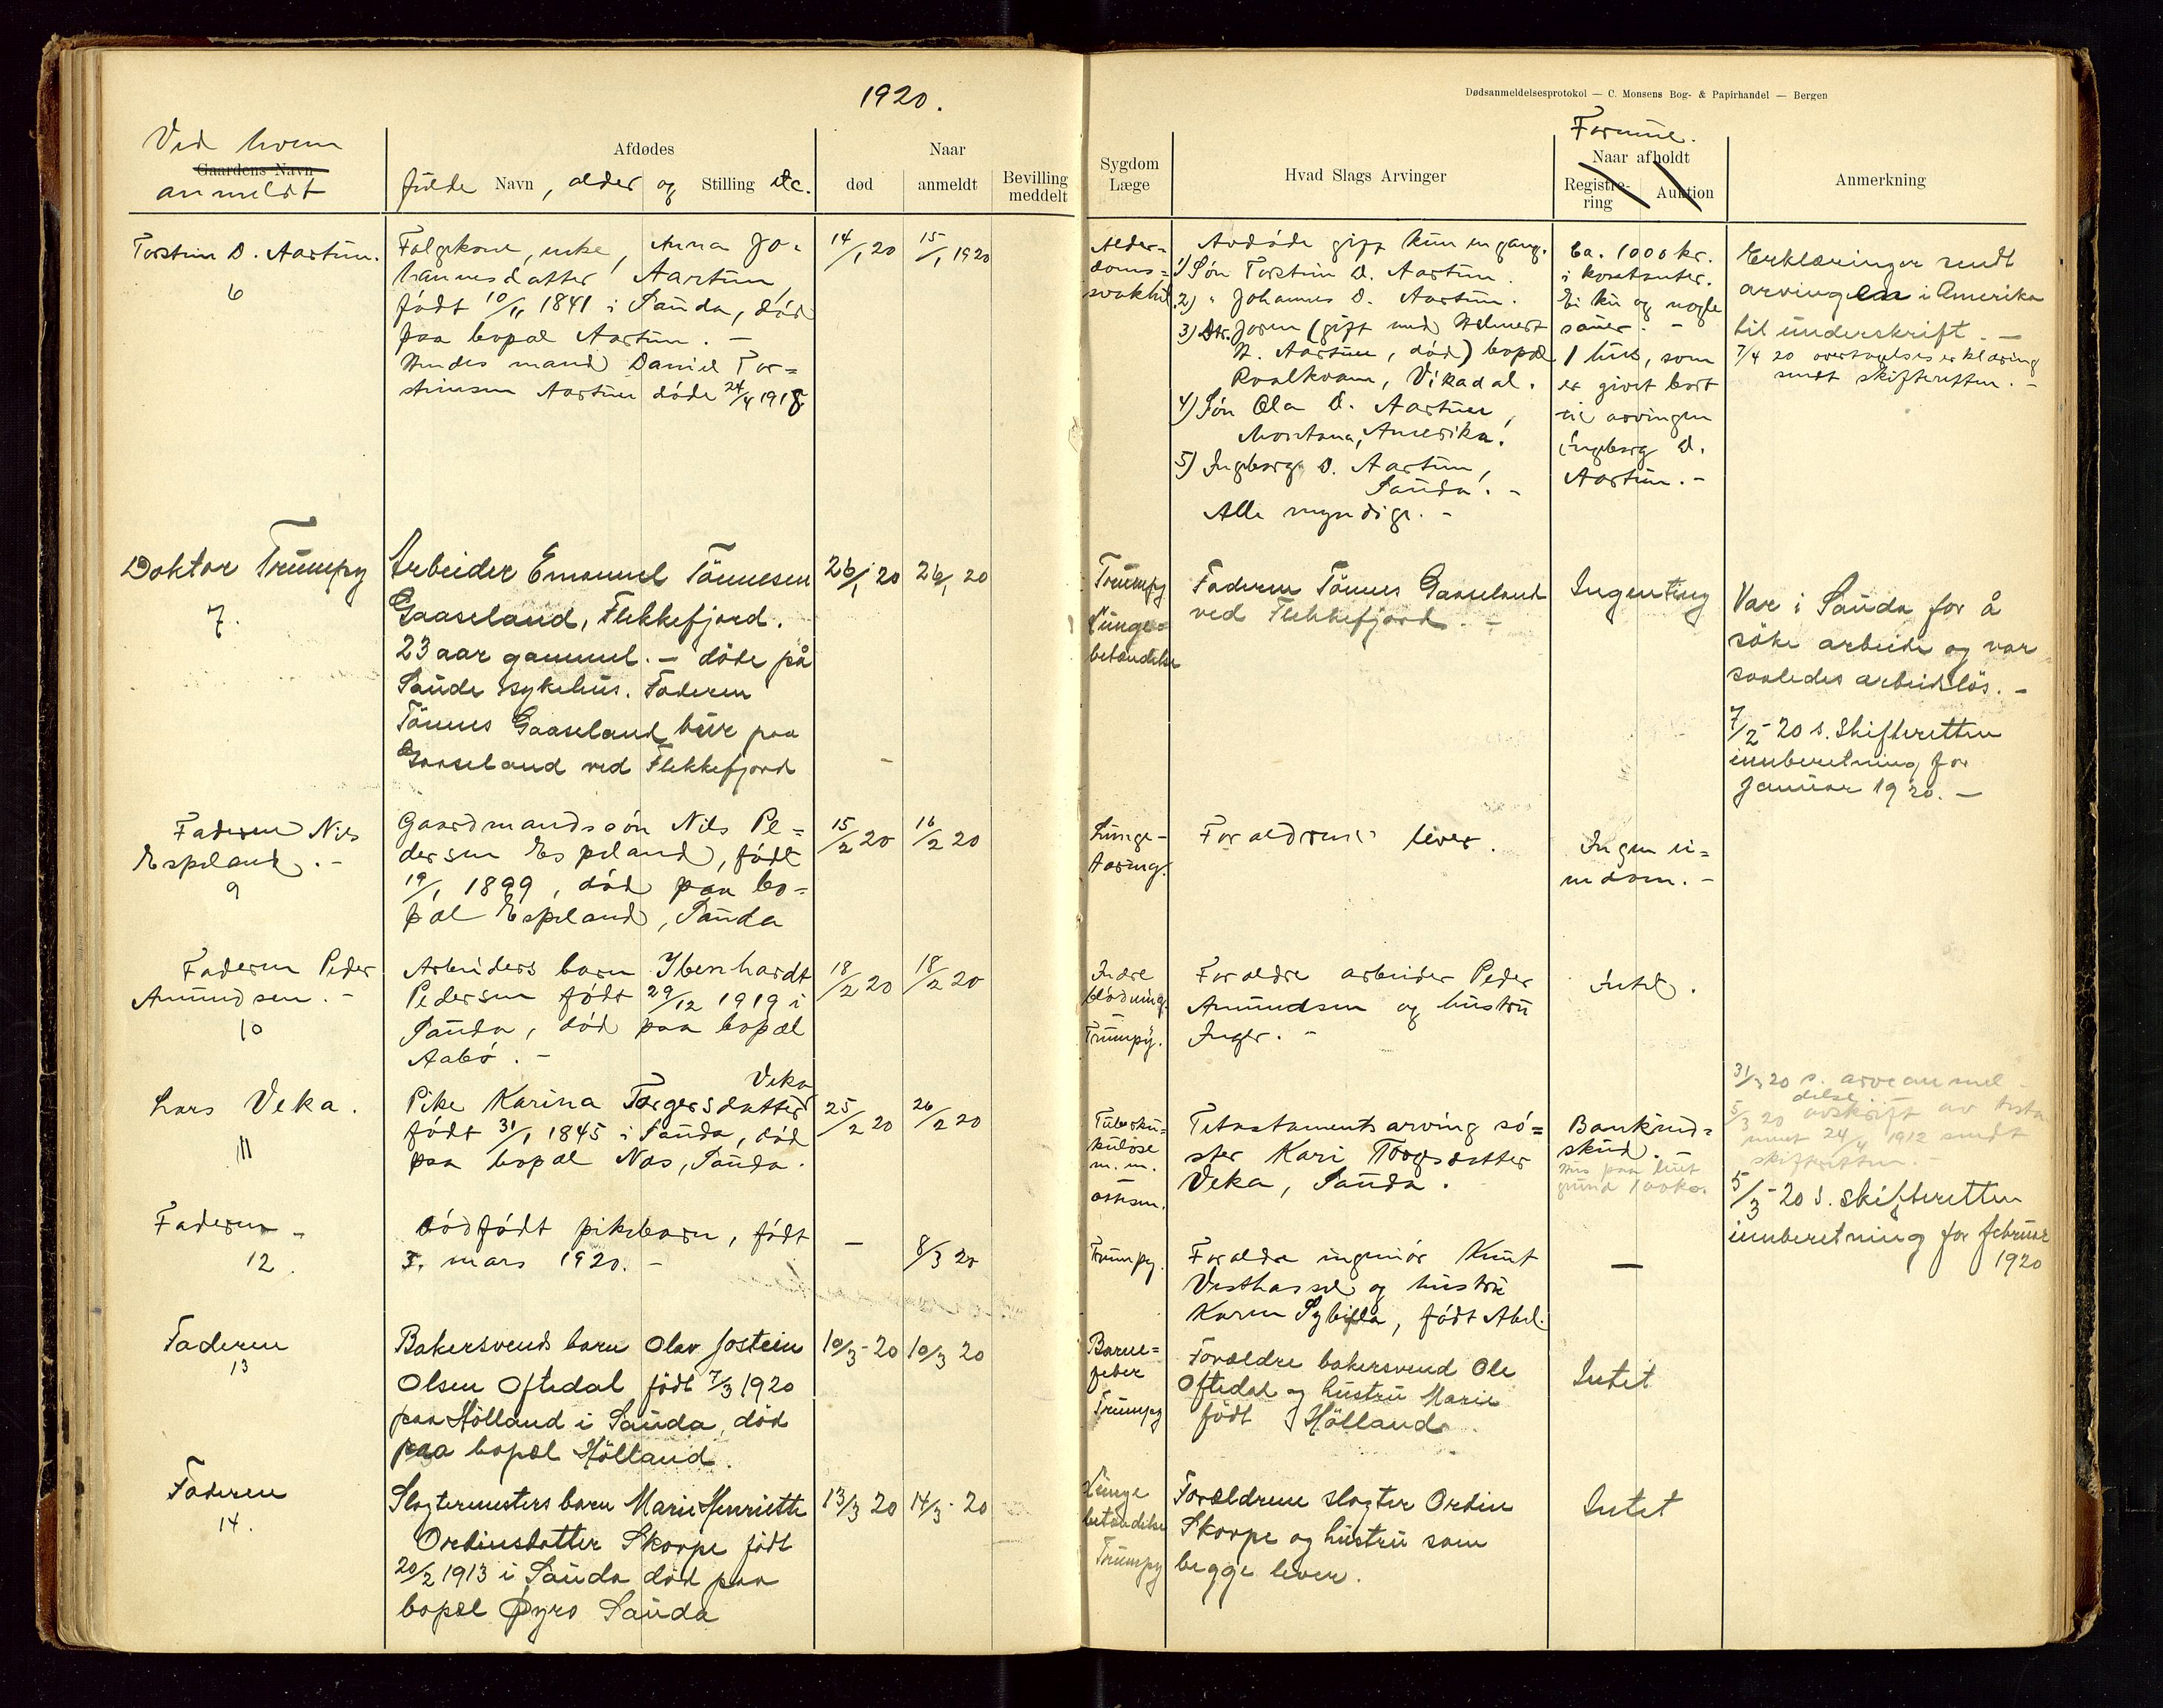 1920.
Dødsanmeldelsesprotokol — C. Monsens Bog- & Papirhandel — Bergen
Ved hvem
Gaardens Navn
anmeldt
Afdødes
fulde Navn, alder og Stilling etc.
Naar
død
anmeldt
Bevilling
meddelt
Sygdom
Læge
Hvad Slags Arvinger
Formue.
Naar afholdt
Registre-
ring
Auktion
Anmerkning
Torstein D. Aartun.
6
Folgekone, enke, Anna Jo-
hannesdatter Aartun,
født 10/11 1841 i Sauda, død
paa bopæl Aartun. -
Hendes mand Daniel Tor=
steinsen Aartun døde 24/4 1918
14/1 20
15/1 1920
Alder=
doms=
svakhet.
Avdøde gift kun en gang.
1) Søn Torstein D. Aartun.
2) " Johannes D. Aartun.
3) Dtr. Joren (gift med Helmert
H. Aartun, død) bopæl
Roalkvam, Vikadal.
4) Søn Ola D. Aartun,
Montana, Amerika.
5) Ingeborg D. Aartun,
Sauda. -
Alle myndige. -
Ca. 1000 kr.
i kontanter.
Ei ku og nogle
sauer. -
1 hus, som
er givet bort
til arvingen
Ingeborg D.
Aartun. -
Erklæringer sendt
arvingen i Amerika
til underskrift. -
7/4 20 overtagelseserklæring
sendt skifteretten. -
Doktor Trumpy
7.
Arbeider Emanuel Tönnesen
Gaaseland, Flekkefjord.
23 aar gammel. - döde på
Saude sykehus. Faderen
Tönnes Gaaseland bur paa
Gaaseland ved Flekkefjord
26/1 20
26/1 20
Trumpy
Lunge=
betændelse
Faderen Tönnes Gaaseland
ved Flekkefjord. -
Ingenting
Var i Sauda for å
söke arbeide og var
saaledes arbeidslös. -
7/2 - 20 s. Skifteretten
innberetning for
Januar 1920. -
Faderen Nils
Espeland. -
9
Gaardmandssøn Nils Pe=
dersen Espeland, født
19/1 1899, død paa bo=
pæl Espeland, Sauda
15/2 20
16/2 20
Lunge-
tæring.
Forældrene lever.
Ingen ei=
endom. -
Faderen Peder
Amundsen. -
10
Arbeiders barn Ibenhardt
Pedersen født 29/12 1919 i
Sauda, død paa bopæl
Aabø. -
18/2 20
18/2 20
Indre
blødning.
Trumpy.
Forældre arbeider Peder
Amundsen og hustru
Inger. -
Intet.
Lars Veka.
11
Veka
Pike Karina Torgersdatter
født 31/1 1845 i Sauda, død
paa bopæl Næs, Sauda.
25/2 20
26/2 20
Tuberku-
kuløse
m. m.
Testamentsarving sø=
ster Kari Torgersdatter
Veka, Sauda.
Bankind=
skud. -
hus paa leiet
grund 100 kr.
31/3 20 s. arveanmel-
delse
5/3 20 avskrift av testa
ment 24/4 1912 sendt
skifteretten. -
5/3 - 20 s. skifteretten
innberetning for februar
1920
Faderen -
12
Dødfødt pikebarn, født
5. mars 1920. -
-
8/3 20
Trumpy.
Forældre ingeniør Knut
Vesthassel og hustru
Karen Sybilla, født Abel.
—
Faderen
13
Bakersvends barn Olav Jostein
Olsen Oftedal født 7/3 1920
paa Hölland i Sauda, död
paa bopæl Hölland.
10/3 - 20
10/3 20
Barne=
feber
Trumpy
Forældre bakersvend Ole
Oftedal og hustru Marie
født Hölland.
Intet
Faderen
14.
Slagtermesters barn Marie Henriette
Ordinsdatter Skorpe født
20/2 1913 i Sauda död paa
bopæl Øyro Sauda
13/3 20
14/3 - 20
Lunge
betændelse
Trumpy
Forældrene slagter Ordin
Skorpe og hustru som
begge lever.
Intet